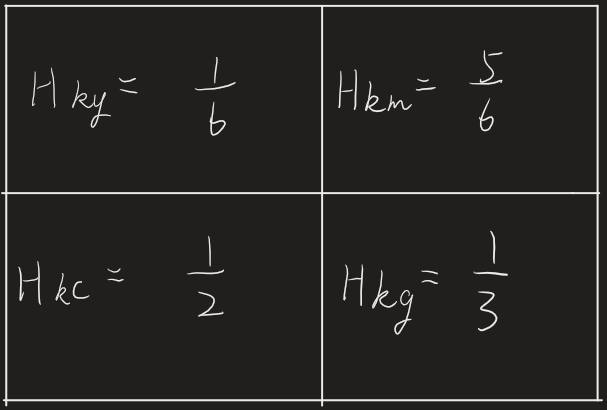 H_{ky} = \frac{1}{6}
H_{km} = \frac{5}{6}
H_{kc} = \frac{1}{2}
H_{kg} = \frac{1}{3}